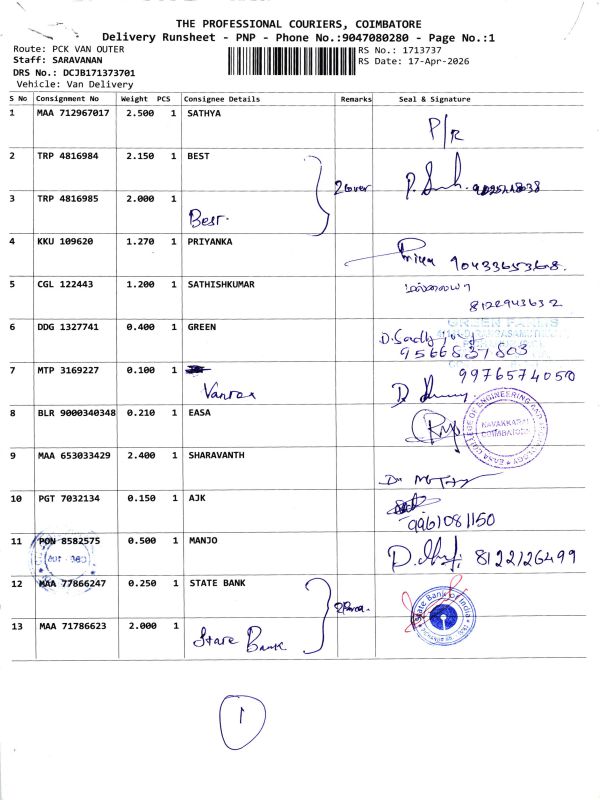 THE PROFESSIONAL COURIERS, COIMBATORE
Delivery Runsheet - PNP - Phone No.:9047080280 - Page No.:1
Route: PCK VAN OUTER
RS No.: 1713737
Staff: SARAVANAN
RS Date: 17-Apr-2026
DRS No.: DCJB171373701
Vehicle: Van Delivery
S No Consignment No Weight PCS Consignee Details Remarks Seal & Signature
1 MAA 712967017 2.500 1 SATHYA P/R
2 TRP 4816984 2.150 1 BEST 2 Cover
3 TRP 4816985 2.000 1 Best.
4 KKU 109620 1.270 1 PRIYANKA Priya 9043365368.
5 CGL 122443 1.200 1 SATHISHKUMAR
8122943632
6 DDG 1327741 0.400 1 GREEN
9566837803
7 MTP 3169227 0.100 1 9976574050
8 BLR 9000340348 0.210 1 EASA
NAVAKKARAI
COIMBATORE
9 MAA 653033429 2.400 1 SHARAVANTH
10 PGT 7032134 0.150 1 AJK
9961081150
11 PON 8582575 0.500 1 MANJO 8122126499
12 MAA 77866247 0.250 1 STATE BANK
State Bank of India
13 MAA 71786623 2.000 1 State Bank
1